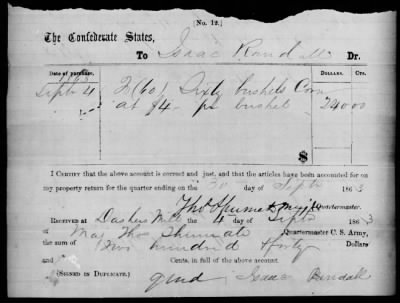 (No. 12.)
The Confederate States,
To Isaac Randall Dr.
Date of purchase. Dollars. Cts.
1863
Septr 4 (60) Sixty bushels Corn
at $4 - pr bushel 240 00
$
I CERTIFY that the above account is correct and just, and that the articles have been accounted for on
my property return for the quarter ending on the 30 day of Septr 1863
Thos Shumate Majr Quartermaster.
RECEIVED at Dashers Mill the 4 day of Septr 1863 of
Maj Thos Shumate Quartermaster C. S. Army,
the sum of Two hundred & forty Dollars
and Cents, in full of the above account.
(SIGNED IN DUPLICATE.) Isaac Randall